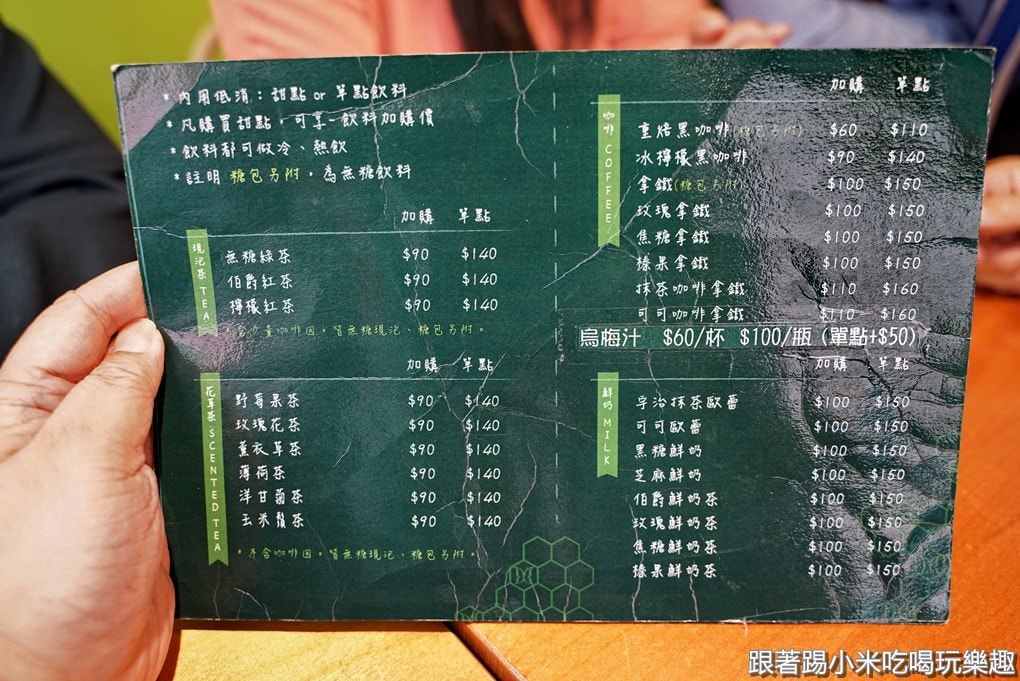 *內用低消：甜點 or 單點飲料
*凡購買甜點，可享一飲料加購價
*飲料都可做冷、熱飲
*註明 糖包另附，為無糖飲料
加購 單點
現泡茶 TEA
無糖綠茶 $90 $140
伯爵紅茶 $90 $140
檸檬紅茶 $90 $140
*含少量咖啡因。皆無糖現泡、糖包另附。
加購 單點
花草茶 SCENTED TEA
野莓果茶 $90 $140
玫瑰花茶 $90 $140
薰衣草茶 $90 $140
薄荷茶 $90 $140
洋甘菊茶 $90 $140
玉米鬚茶 $90 $140
*不含咖啡因。皆無糖現泡、糖包另附。
加購 單點
咖啡 COFFEE
重焙黑咖啡(糖包另附) $60 $110
冰檸檬黑咖啡 $90 $140
拿鐵(糖包另附) $100 $150
玫瑰拿鐵 $100 $150
焦糖拿鐵 $100 $150
榛果拿鐵 $100 $150
抹茶咖啡拿鐵 $110 $160
可可咖啡拿鐵 $110 $160
烏梅汁 $60/杯 $100/瓶 (單點+$50)
加購 單點
鮮奶 MILK
宇治抹茶歐蕾 $100 $150
可可歐蕾 $100 $150
黑糖鮮奶 $100 $150
芝麻鮮奶 $100 $150
伯爵鮮奶茶 $100 $150
玫瑰鮮奶茶 $100 $150
焦糖鮮奶茶 $100 $150
榛果鮮奶茶 $100 $150
跟著踢小米吃喝玩樂趣